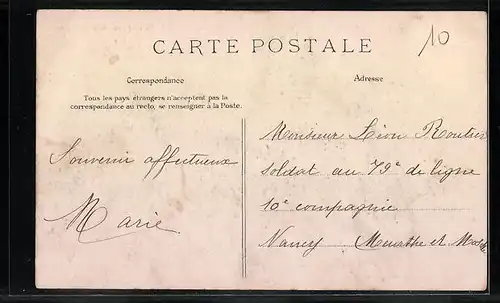 10
CARTE POSTALE
Correspondance
Adresse
Tous les pays étrangers n'acceptent pas la
correspondance au recto, se renseigner à la Poste.
Souvenir affectueux
Marie
Monsieur Léon
soldat au 79e de ligne
10e compagnie
Nancy Meurthe et